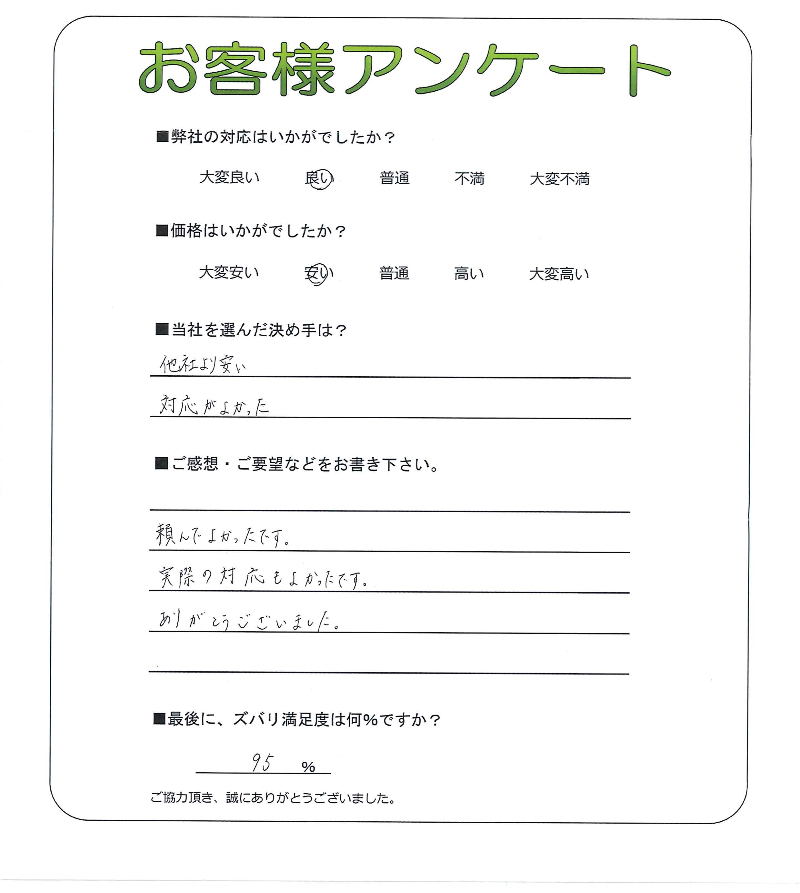 お客様アンケート
■弊社の対応はいかがでしたか？
大変良い 良い 普通 不満 大変不満
■価格はいかがでしたか？
大変安い 安い 普通 高い 大変高い
■当社を選んだ決め手は？
他社より安い
対応がよかった
■ご感想・ご要望などをお書き下さい。
頼んでよかったです。
実際の対応もよかったです。
ありがとうございました。
■最後に、ズバリ満足度は何%ですか？
95 %
ご協力頂き、誠にありがとうございました。